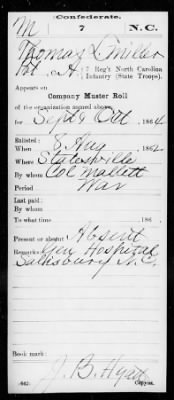 Confederate.
M 7 N.C.
Thomas L. Miller
Pvt, Co. A, 7 Reg't North Carolina
Infantry (State Troops).
Appears on
Company Muster Roll
of the organization named above,
for Sept & Oct, 1864.
Enlisted:
When 8 Aug, 1862.
Where Statesville
By whom Col Mallett
Period War
Last paid:
By whom
To what time , 186 .
Present or absent Absent
Remarks: Gen Hospital
Salisbury N.C.
Book mark:
J. B. Hyatt
(642) Copyist.